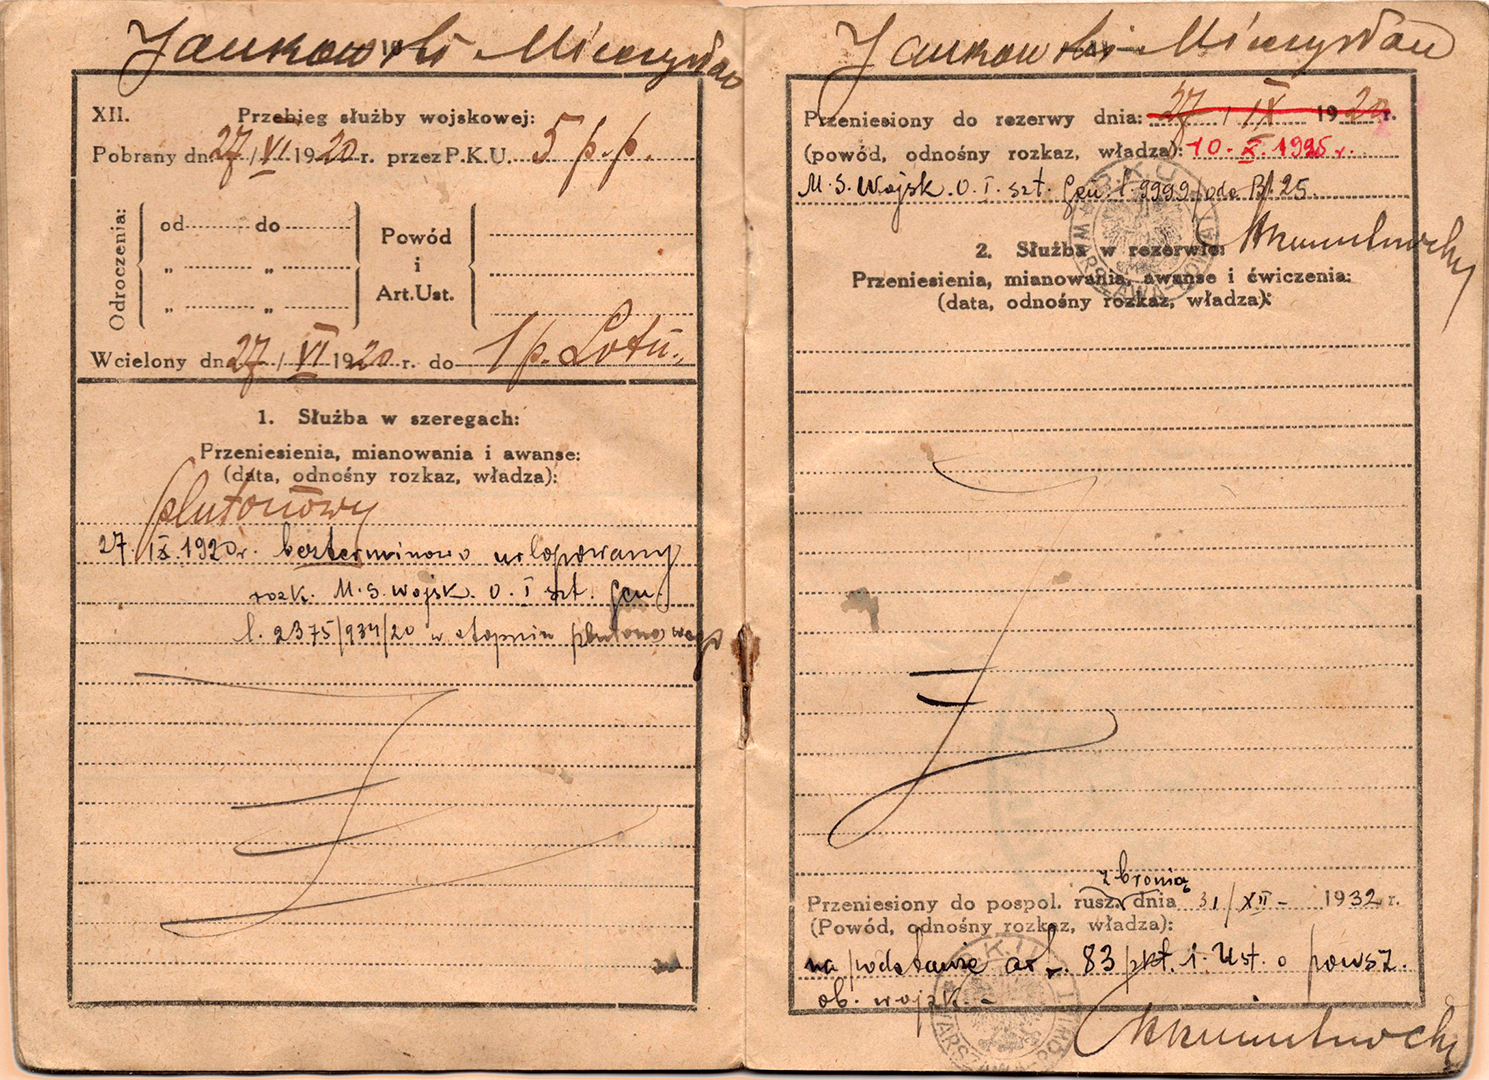 Jankowski Mieczysław
XII. Przebieg służby wojskowej:
Pobrany dn. 27/VI 1920 r. przez P.K.U. 5 p.p.
Odroczenia:
od do
„ „
„ „
Powód
i
Art.Ust.
Wcielony dn. 27/VI 1920 r. do 1 p. Lotn.
1. Służba w szeregach:
Przeniesienia, mianowania i awanse:
(data, odnośny rozkaz, władza):
plutonowy
27. IX. 1920 r. bezterminowo urlopowany
rozk. M.S.Wojsk. O. I szt. Gen.
l. 2375/934/20 w stopniu plutonowego
Jankowski Mieczysław
Przeniesiony do rezerwy dnia: 27 / IX 1920 r.
(powód, odnośny rozkaz, władza): 10. X. 1925 r.
M.S.Wojsk. O. I. szt. Gen. l. 9999/ 25
2. Służba w rezerwie:
Przeniesienia, mianowania, awanse i ćwiczenia:
(data, odnośny rozkaz, władza):
z bronią
Przeniesiony do pospol. rusz. dnia 31/XII - 1932 r.
(Powód, odnośny rozkaz, władza):
na podstawie art. 83 pkt. 1. Ust. o powsz.
ob. wojsk. -